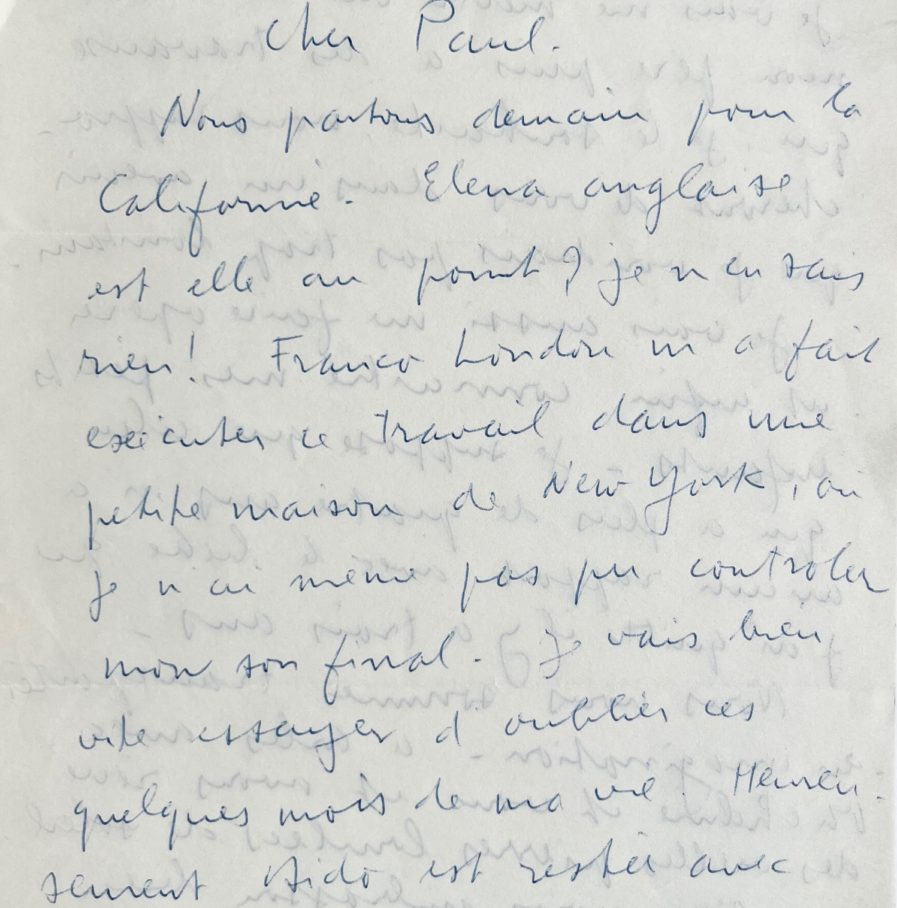 Cher Paul.
Nous partons demain pour la
Californie. Elena anglaise
est elle au point? je n en sais
rien! Franco London m a fait
exécuter ce travail dans une
petite maison de New York, où
je n ai même pas pu controler
mon son final. Je vais bien
vite essayer d oublier ces
quelques mois de ma vie. Heureu-
sement Aido est restée avec